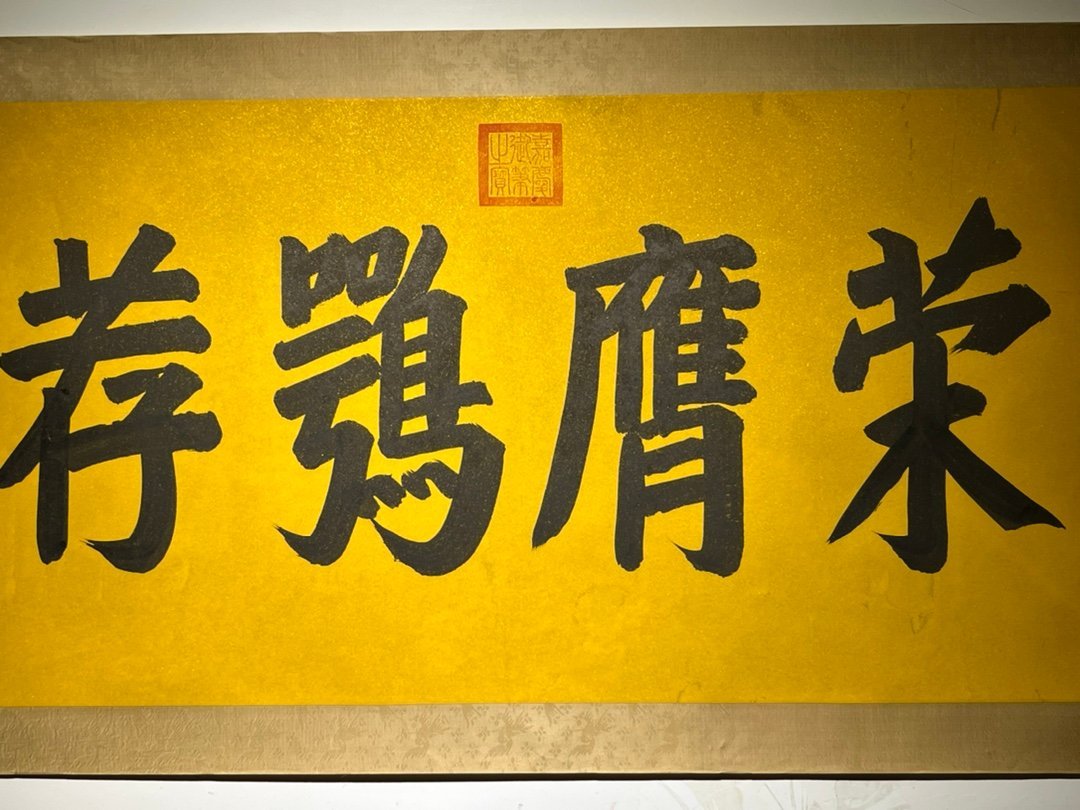 荣膺鶚荐
嘉慶御筆之寶